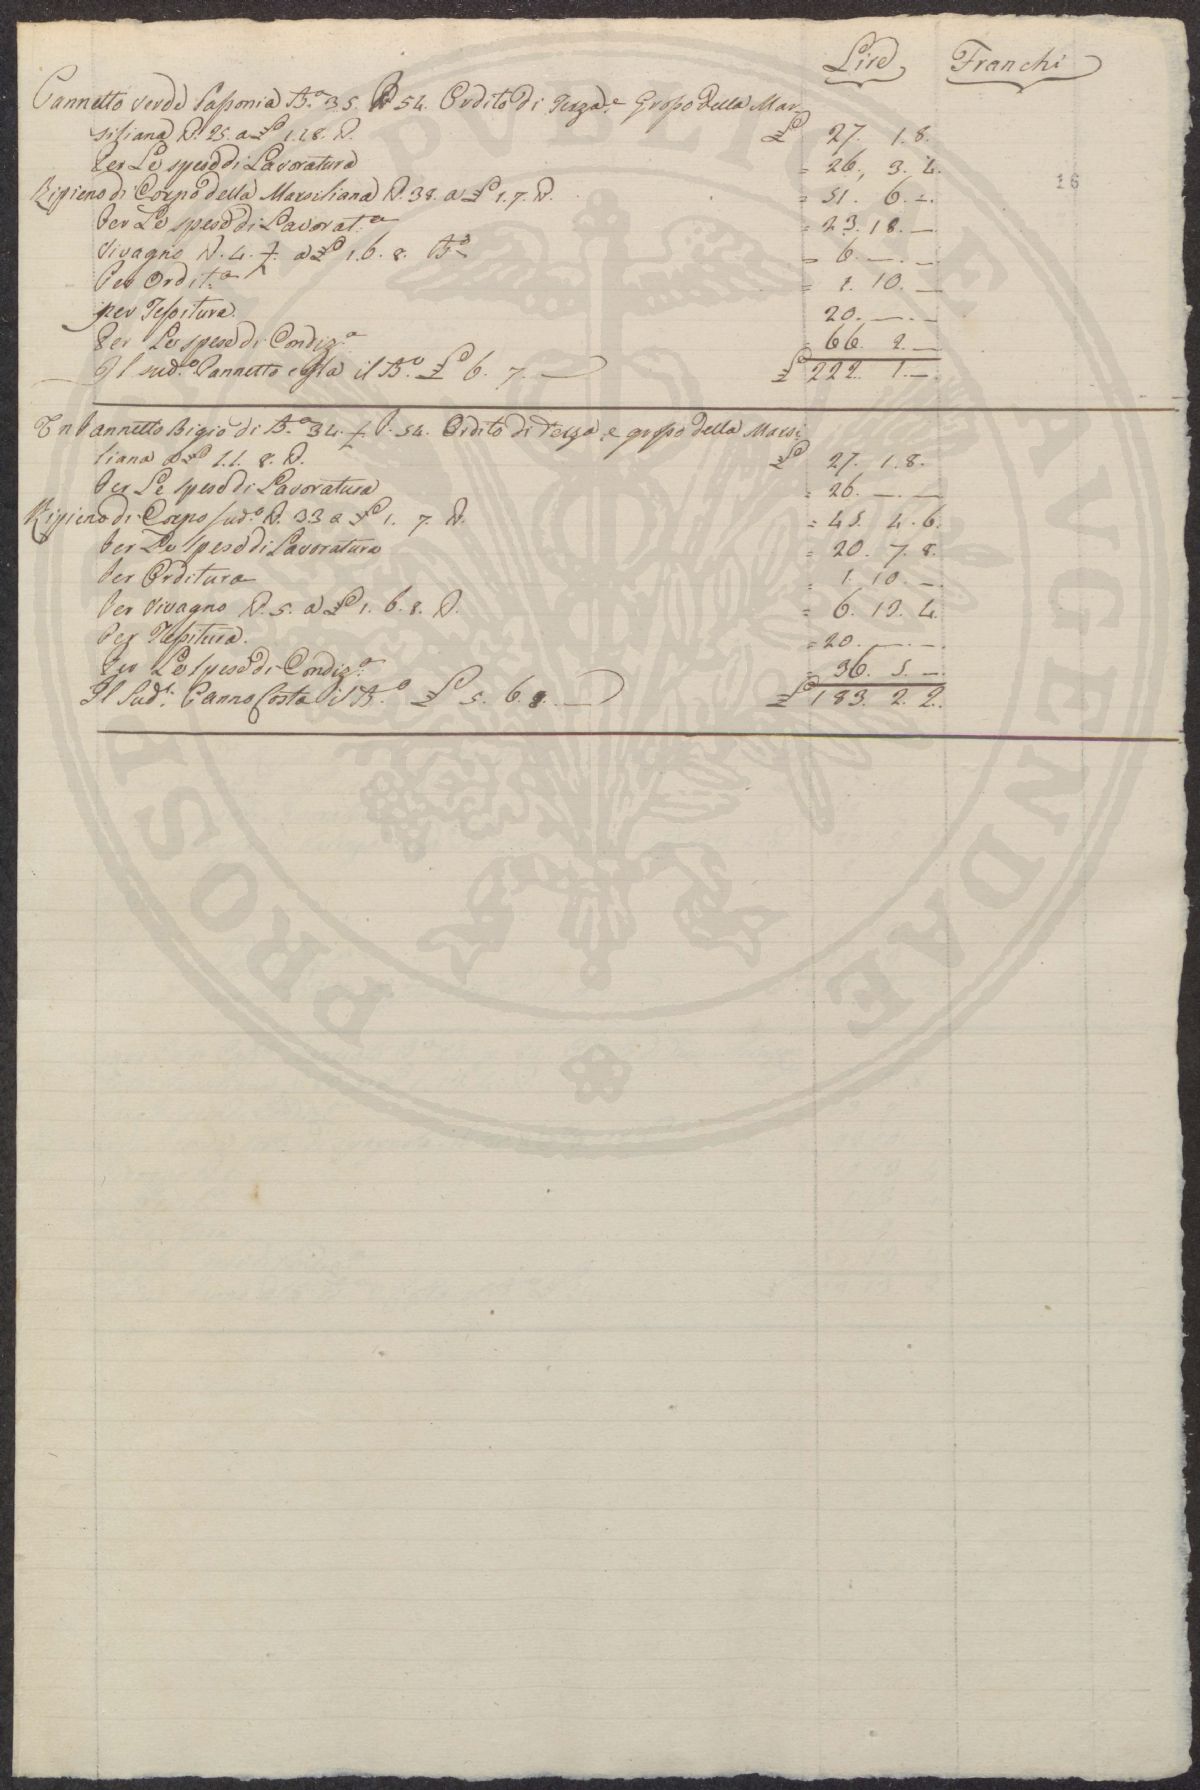 Lire Franchi
Pannetto verde Sassonia B.a 35. P. 54. Ordito di Terza e Grosso della Mar-
siliana P. 25. a £ 1. 1. 8. P. £ 27. 1. 8.
Per Le spese di Lavoratura = 26. 3. 4.
Ripieno di Corpo della Marsiliana P. 38. a £ 1. 7. P. = 51. 6. –.
Per Le spese di Lavorat.a = 23. 18. —
Vivagno P. 4. ½. a £ 1. 6. 8. = 6. — . —
Per Ordit.a = 1. 10. —
per Tessitura. 20. — . —
Per Le spese di Condiz.e = 66. 2. —
Il sud.o Pannetto costa il B.o £ 6. 7. — £ 222. 1. —.
Un Pannetto Bigio di B.a 34. ½ P. 54. Ordito di Terza, e grosso della Marsi-
liana a £ 1. 1. 8. P. £ 27. 1. 8.
Per Le spese di Lavoratura = 26. — . —
Ripieno di Corpo sud.o P. 33 a £ 1. 7. P. = 45. 4. 6.
Per Le spese di Lavoratura = 20. 7. 8.
Per Orditura = 1. 10. —.
Per Vivagno P. 5. a £ 1. 6. 8. P. = 6. 13. 4.
Per Tessitura. = 20. — . —.
Per Le spese di Condiz.e = 36. 5. —
Il Sud.o Panno Costa il B.o £ 5. 6. 8. — £ 183. 2. 2.
16
PROSPERITATI PVBLICAE AVGENDAE